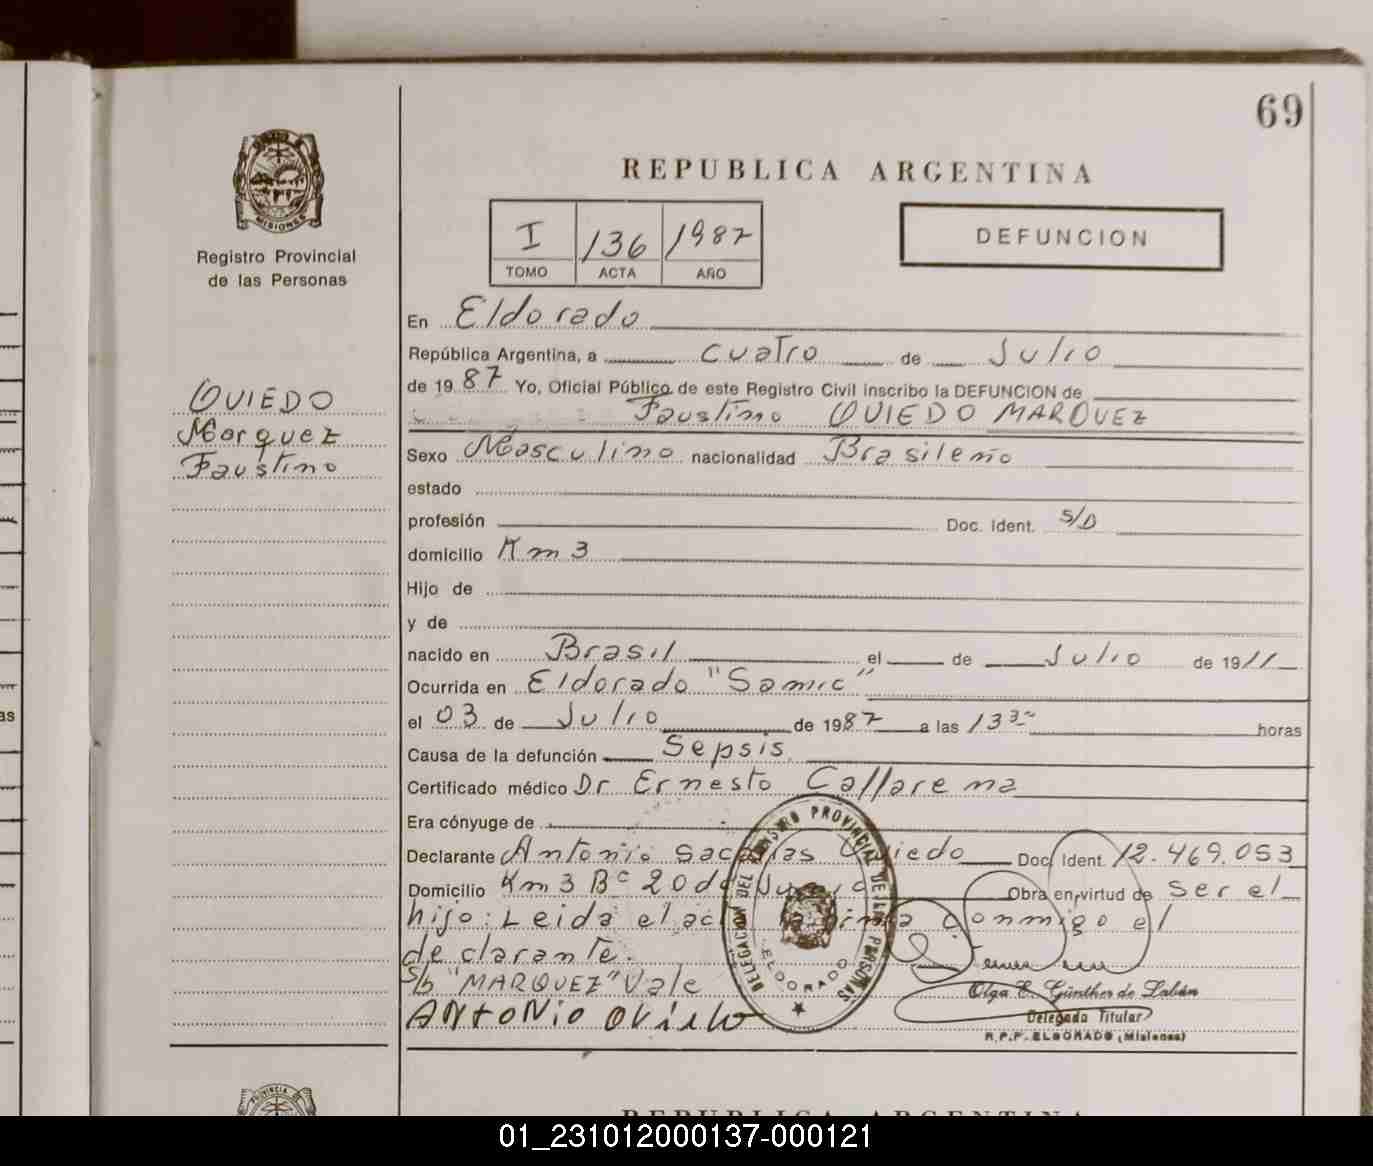 69
REPUBLICA ARGENTINA
MISIONES
Registro Provincial
de las Personas
I 136 1987
TOMO ACTA AÑO
DEFUNCION
OVIEDO
Marquez
Faustino
En Eldorado
República Argentina, a cuatro de Julio
de 1987 Yo, Oficial Público de este Registro Civil inscribo la DEFUNCION de
Faustino OVIEDO MARQUEZ
Sexo Masculino nacionalidad Brasileño
estado
profesión Doc. Ident. S/D
domicilio Km 3
Hijo de
y de
nacido en Brasil el de Julio de 1911
Ocurrida en Eldorado "Samic"
el 03 de Julio de 1987 a las 13 30 horas
Causa de la defunción Sepsis
Certificado médico Dr Ernesto Callarena
Era cónyuge de
Declarante Antonio Sacarias Oviedo Doc. Ident. 12.469.053
Domicilio Km 3 Bº 20 de Junio Obra en virtud de Ser el
hijo: Leida el acta la firma conmigo el
declarante.
S/b "MARQUEZ" Vale
ANtoNio oviedo
DELEGACION DEL REGISTRO PROVINCIAL DE LAS PERSONAS
ELDORADO
Olga E. Günther de Labán
Delegada Titular
R.P.P. ELDORADO (Misiones)
PROVINCIA
REPUBLICA ARGENTINA
01_231012000137-000121